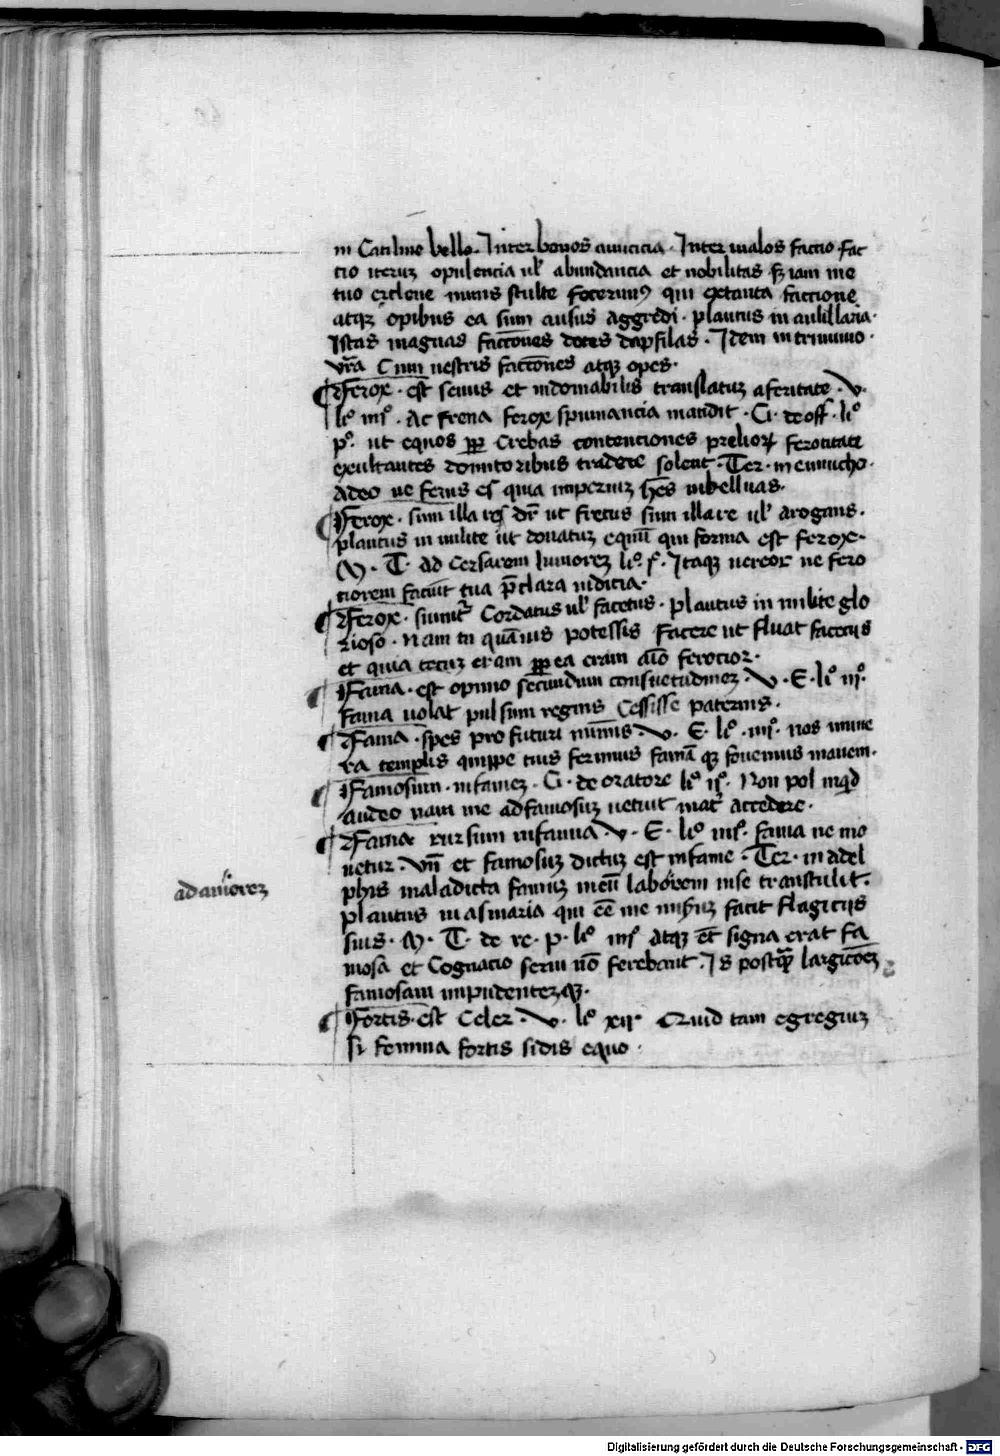 in Catilino bello. Inter bonos amicicia. Inter malos factio. fac
tio iteruz opulencia ul' abundancia et nobilitas iam me
tuo stulte qui extanta faccione
atqz opibus ea sum ausus aggredi. plautus in aulillaria.
Istas magnas facc̄ones dotes dapsilas. Idem in trinumo.
vr̄a Cum nestris facc̄ones atqz opes.
¶ Ferox. est seuus et indomabilis translatuz a feritate. v.
li° iiij°. Ac frena ferox spumancia mandit. Ci. de off. li°
p°. ut equos crebas contenciones ferotitate
exultantes domitoribus tradere solent. Ter. in eunucho.
Adeo ne ferus es quia imperiuz in belluas.
¶ Ferox. sim illares dr̄ ut fretus sim illare ul' arogans.
plautus in milite ut donatuz equiū qui forma est ferox.
M. T. ad Cersarem Iuniorez li°. Itaqz uereor ne fero
ciorem faciūt tua p̄clara iudicia.
¶ Ferox. Cordatus ul' facetus. plautus in milite glo
rioso. Nam tu quāuis potessis facere ut fluat facetijs
et quia tecuz eram ea eram aīo ferocior.
¶ Fama. est opinio secundum consuetudinez. v. E. li° iij°.
fama uolat pulsum regnis Cessisse paternis.
¶ Fama. spes pro futuri nūinis. v. E. li°. iiij°. nos mune
ra templis quippe tuis ferimus famā qz fouemus inanem.
¶ Famosum. infamez. Ci. de oratore li° ij°. Non pol inqd
audeo nam me ad famosuz uetuit mat̄ accedere.
¶ Fama rursum infamia v. E. li° iiij°. fama ne mo
uetur. vn̄ et famosuz dictuz est infame. Ter. in adel
phis maladicta famuz meū laborem inse transtulit.
plautus in asinaria qui eē me facit flagicijs
suis. M. T. de re. p. li° iiij° atqz et signa erat fa
mosa et Cognacio serui nō ferebant. Is largicōez
famosam impudentezqz.
¶ Fortis. est Celer. v. li° xij. Quid tam egregiuz
si femina fortis fidis equo.
ad amorez